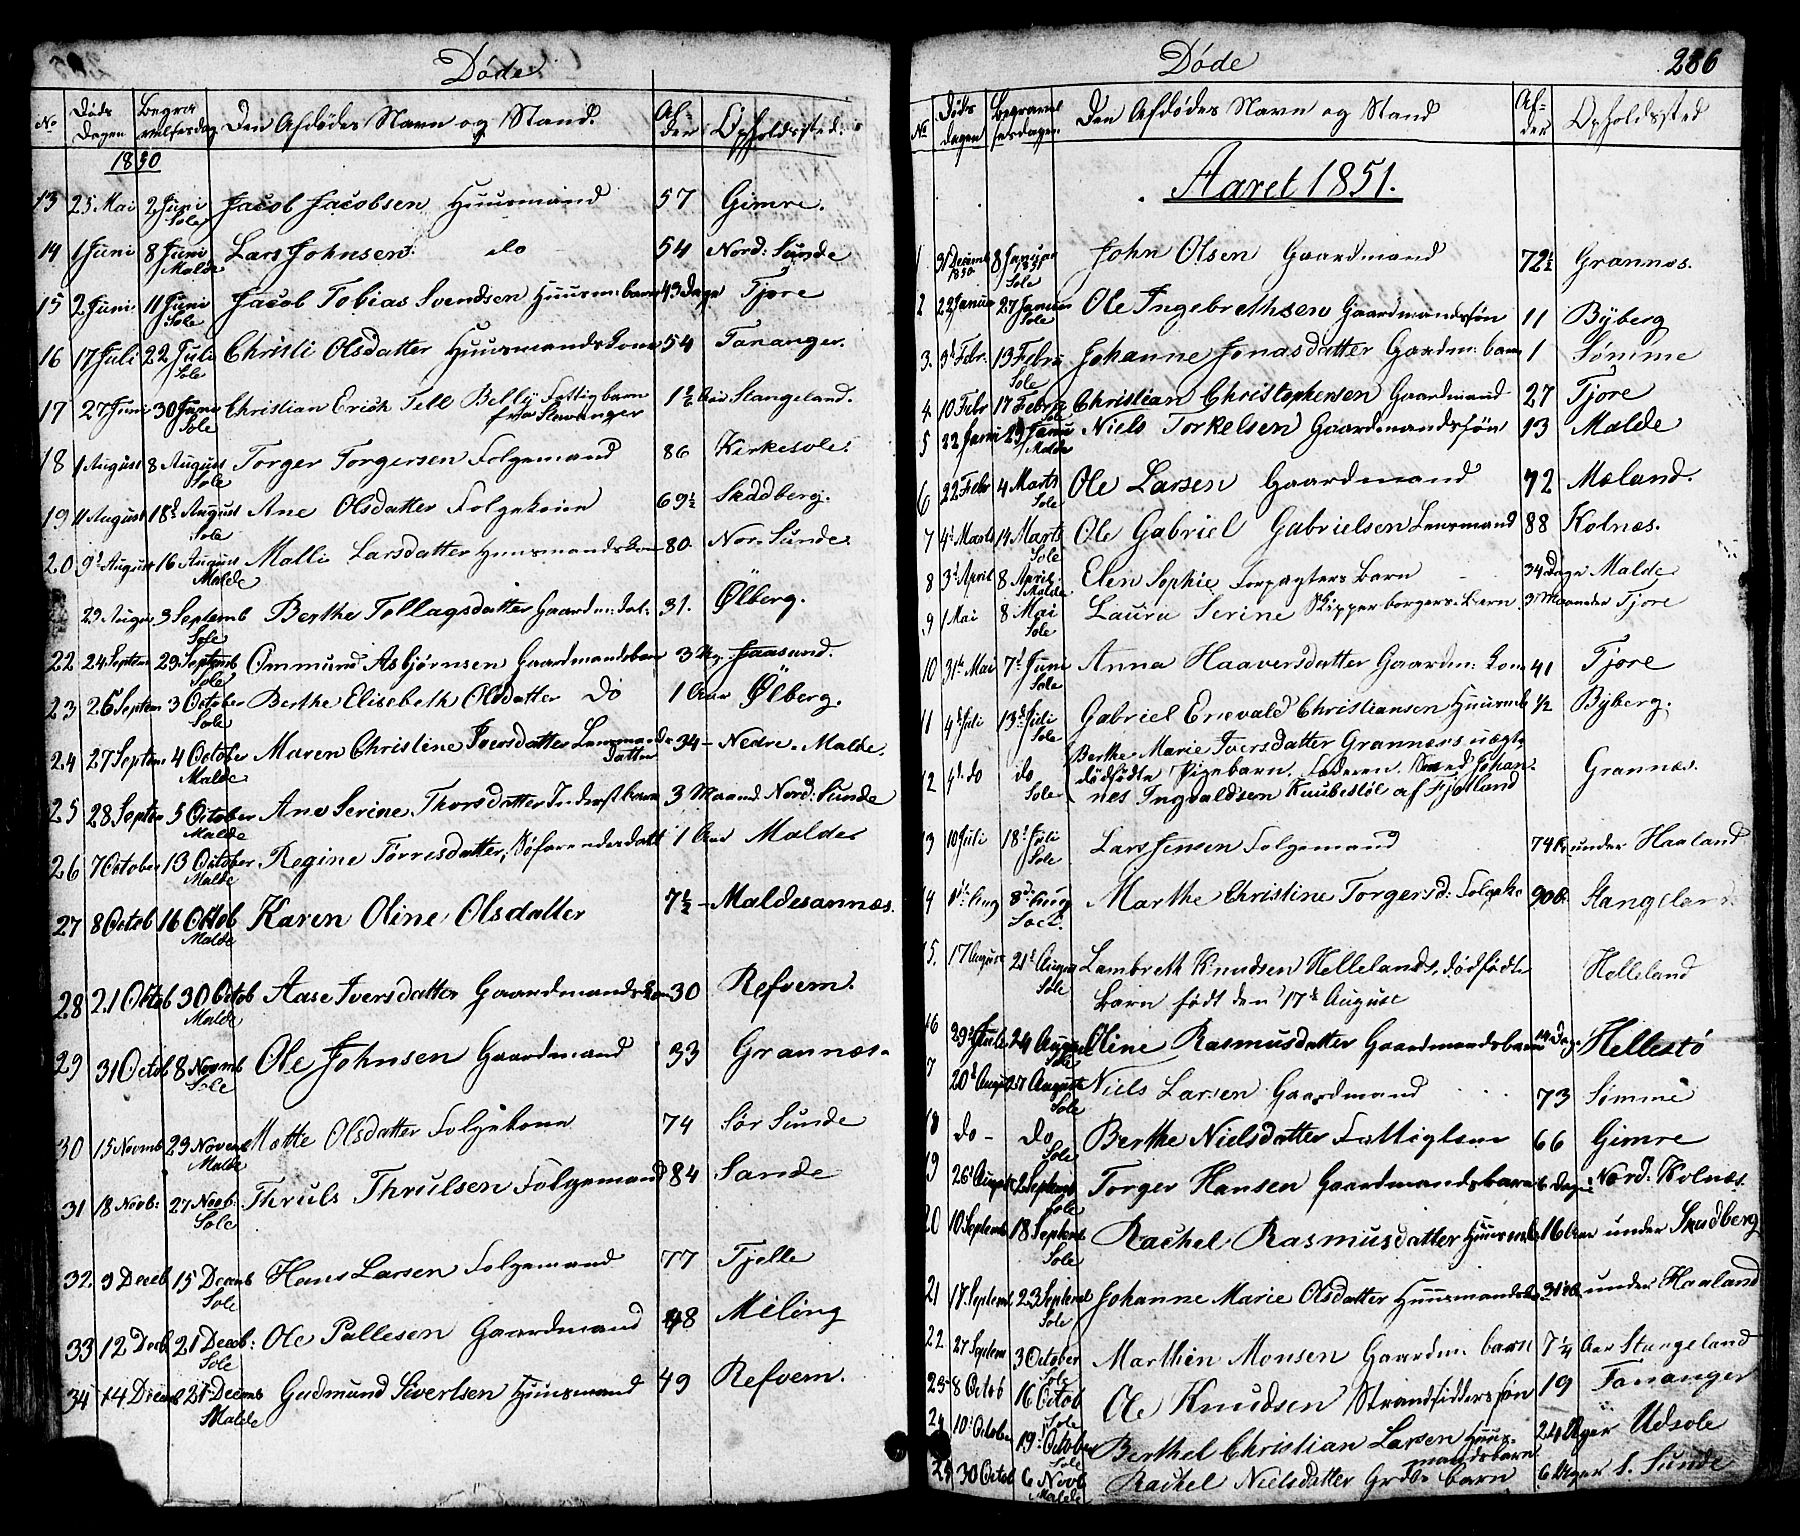 Døde
No Døds Dagen Begravelsesdag Den Afdødes Navn og Stand. Alder Opholdssted.
1850
13 25 Mai 2 Juni Sole Jacob Jacobsen Huusmand 57 Gimre.
14 1 Juni 8 Juni Malde Lars Johnsen do 54 Nord: Sunde
15 2 Juni 11 Juni Sole Jacob Tobias Svendsen Huusm: barn 43 Dage Tjore
16 17 Juli 22 Juli Sole Christi Olsdatter Huusmandskone 54 Tananger.
17 27 Juni 30 Juni Sole Christian Erich Tell Belly Fattigbarn fra Stavanger 1½ Aar Stangeland.
18 1 August 8 August Sole Torger Torgersen Folgemand 86 Kirkesole.
19 11 August 18d August Sole Ane Olsdatter Folgekone 69½ Skadberg.
20 9d August 16 August Malde Malli Larsdatter Huusmandskone 80. Nor. Sunde.
29 Augus 3 Septemb Sole Berthe Tollagsdatter Gaardm: dat. 31. Ølberg.
22 24 Septem 29 Septemb Sole Ommund Asbjørnsen Gaardmandsbarn 3 Ug. Jaasund.
23 26 Septem 3 October Sole Berthe Elisebeth Olsdatter do 1 Aar Ølberg.
24 27 Septem 4 October Malde Maren Christine Iversdatter Lensmands Datter 34 - Nedre. Malde.
25 28 Septem 5 October Malde Ane Serine Thorsdatter Inderstbarn 3 Maand Nord: Sunde
26 7 October 13 October Malde Regine Torresdatter, Søfarendesdatt 1 Aar Malde
27 8 Octob 16 Octob Malde Karen Oline Olsdatter 7½ - Maldesannæs.
28 21 Oktob 30 Octob Malde Aase Iversdatter Gaardmandskon 30 Refvem.
29 31 Octob 8 Novmb Sole Ole Johnsen Gaardmand 33 Grannæs.
30 15 Novmb 23 Novem Malde Mette Olsdatter Folgekone 74 Sør Sunde
31 18 Novb: 27 Novb: Sole Thruls Thrulsen Folgemand 84 Sande
32. 9 Deceb 15 Decmb Sole Hans Larsen Folgemand 77 Tjelle
33 12 Decb 21 Deceb: Sole Ole Pallesen Gaardmand 48 Meling
34 14 Decmb 21 Decmb Malde Gudmund Sivertsen Huusmand 49 Refvem.
Døde 286
No Døds dagen Begravelsesdagen Den Afdødes Navn og Stand Alder Opholdssted
Aaret 1851.
1 31 Decemb 1850 8 Januar 1851 Sole John Olsen Gaardmand 72½ Grannæs.
2 22 Janua 27 Januar Sole Ole Ingebrethsen Gaardmandssøn 11 Byberg
3. 3d Febr. 13 Febru Sole Johanne Jonasdatter Gaardm: barn 1 Sømme
4. 10 Febr 17 Febru Sole Christian Christophersen Gaardmand 27 Tjore
5 22 Janu 29 Janu Malde Niels Torkelsen Gaardmandssøn 13 Malde
6 22 Febr 4 Marts Sole Ole Larsen Gaardmand 72 Meland.
7 4d Marts 14 Marts Sole Ole Gabriel Gabrielsen Lensmand 88 Kolnæs.
8 3d April 8 April. Malde Elen Sophie Forpagters Barn 34 Dage Malde
9 1 Mai 8 Mai Sole Laura Serine Skipperborgers Barn 3 Maaneder Tjore
10 31te Mai 7d Juni Sole Anna Haaversdatter Gaardm: Kone 41 Tjore
11 4d Juli 13d Juli Sole Gabriel Enevald Christiansen Huusmb ½ Byberg.
12 4d. do do Sole Berthe Marie Iversdatter Grannæs uægte dødfødte Pigebarn, Faderen Smed Johannes Ingvaldsen Knubestøl af Fjotland Grannæs.
13 10 Juli 18d Juli Sole Lars Jensen Folgemand 74 under Haaland
14 1d Aug 8d Aug Soel. Marthe Christine Torgersd: Folgeko 90 Stangeland
15. 17 August 21d August Sole Lambreth Knudsen Hellelands dødfødte Barn født den 17d August Helleland
16 29d Juli 24 August Sole Oline Rasmusdatter Gaardmandsbarn 14 Dage Hellestø
7 20d August 27 August Sole Niels Larsen Gaardmand 73 Sømme
18 do - do Sole Berthe Nielsdatter Fattiglem 66 Gimre
19 26d August 2 Septemb Sole Torger Hansen Gaardmandsbarn 6 Dage Nord: Kolnæs.
20 10 Septemb 18 Septemb Sole Rachel Rasmusdatter Huusmb 16 Aar under Skadberg
21 17 Septemb 23 Septemb Sole Johanne Marie Olsdatter Huusmandsko 31 under Haaland
22 27 Septem 3 October Sole Marthin Monsen Gaardm: barn 7¼ Aar Stangeland
23 8 Octob 16 Octob Sole Ole Knudsen Strandsidderssøn 19 Tananger
24 10d October 19d October Sole Berthel Christian Larsen Huusmandsbarn 24 Uger Udsole
25 30 Octob 6 Novb Malde Rachel Nielsdatter Grdbs barn 6 Uger S. Sunde